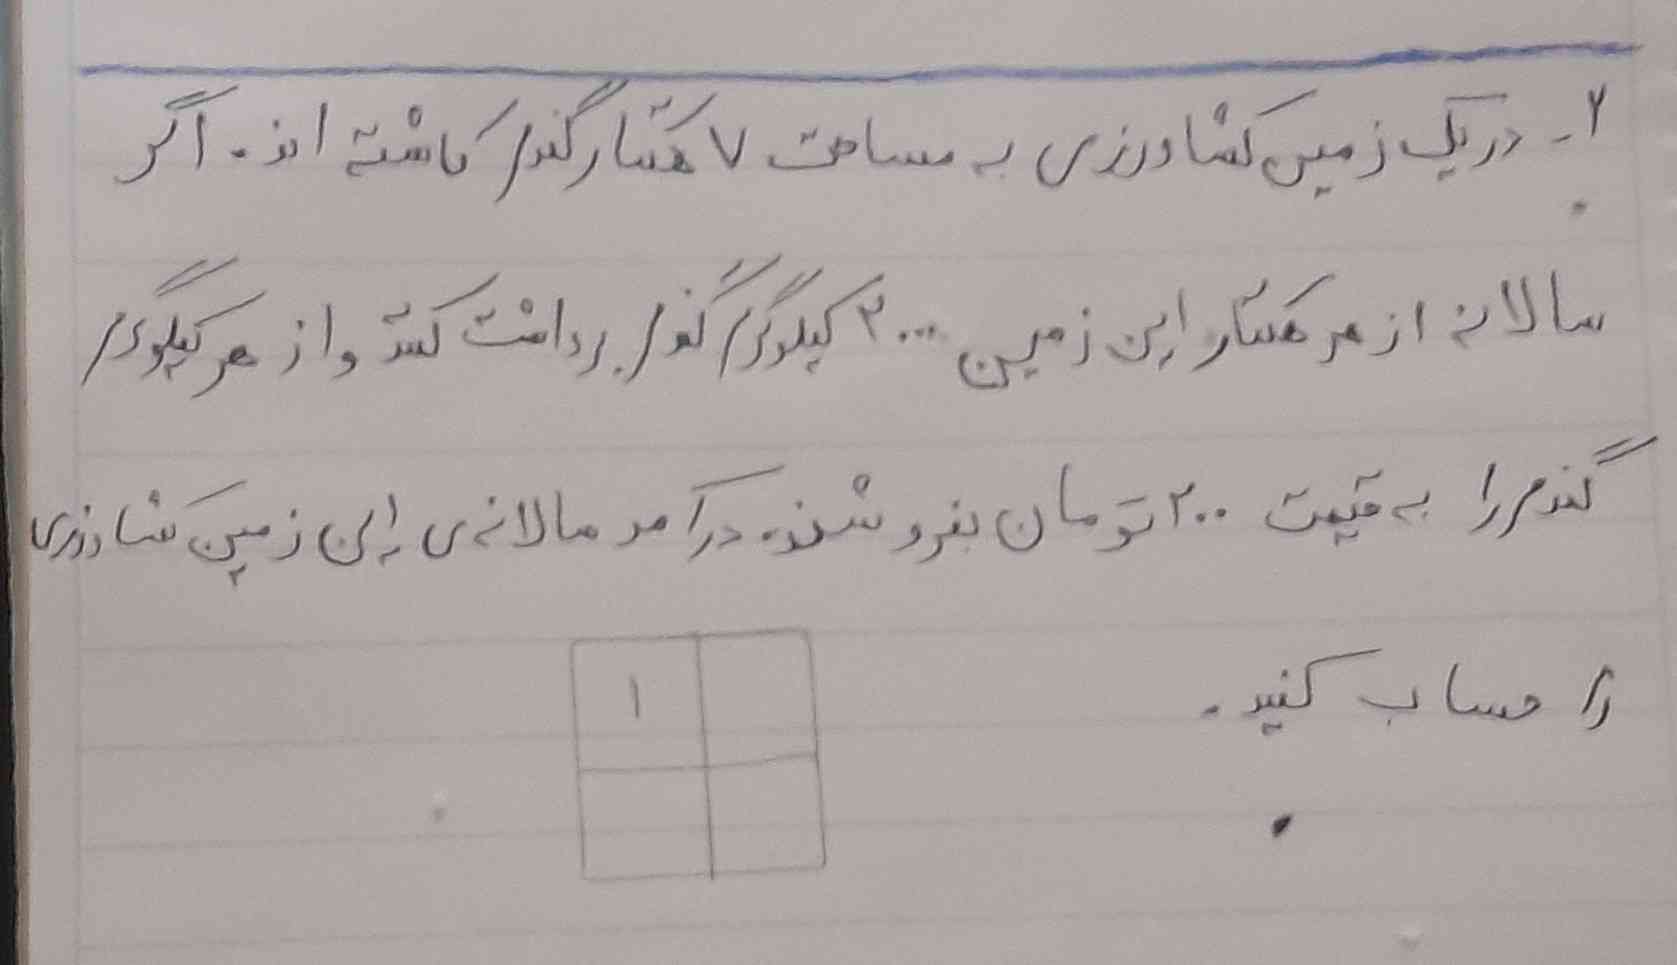 ۲- در یک زمین کشاورزی به مساحت ۷ هکتار گندم کاشته اند. اگر
سالانه از هر هکتار این زمین ۲۰۰۰ کیلوگرم گندم برداشت کنند و از هر کیلوگرم
گندم را به قیمت ۲۰۰ تومان بفروشند. درآمد سالانه‌ی این زمین کشاورزی
را حساب کنید.
۱